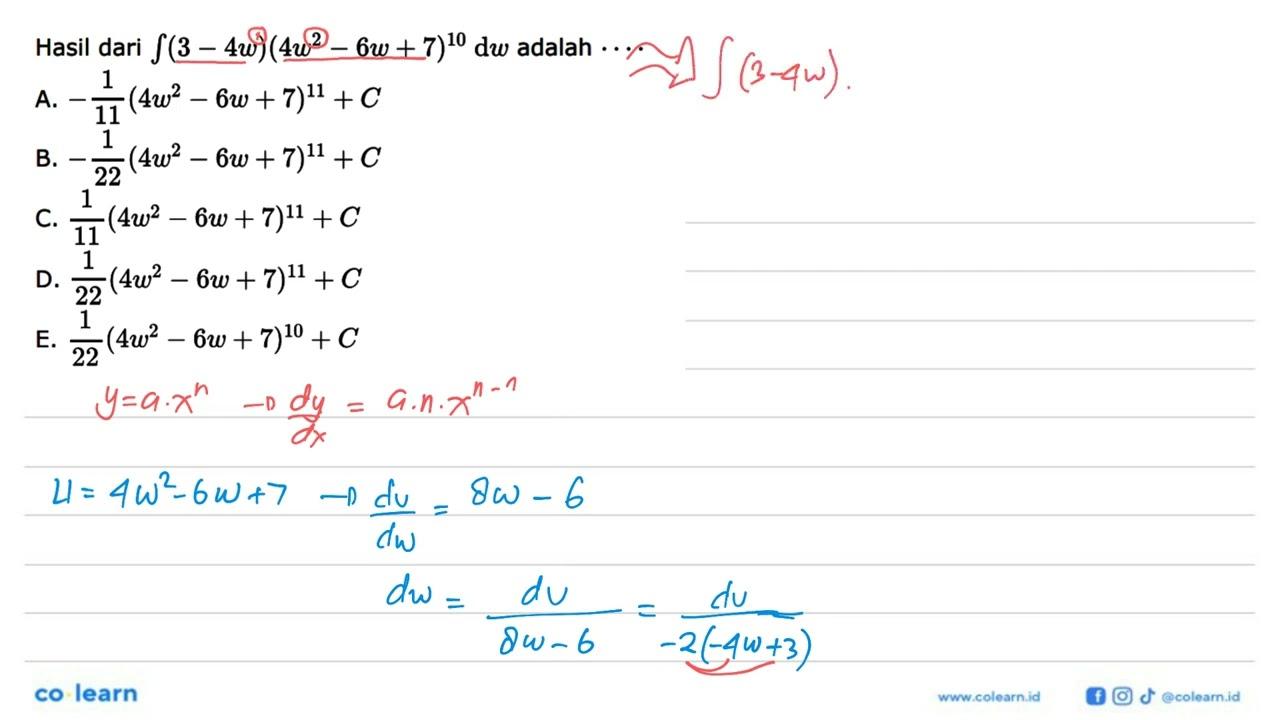 Hasil dari ∫(3 − 4w)(4w² − 6w + 7)¹⁰ dw adalah ····
∫(3-4w).
A. −1/11(4w² − 6w + 7)¹¹ + C
B. −1/22(4w² − 6w + 7)¹¹ + C
C. 1/11(4w² − 6w + 7)¹¹ + C
D. 1/22(4w² − 6w + 7)¹¹ + C
E. 1/22(4w² − 6w + 7)¹⁰ + C
y=a·xⁿ → dy/dx = a.n.xⁿ⁻¹
U = 4w²-6w+7 → du/dw = 8w - 6
dw = du/(8w-6) = du/(-2(-4w+3))
co learn
www.colearn.id
@colearn.id